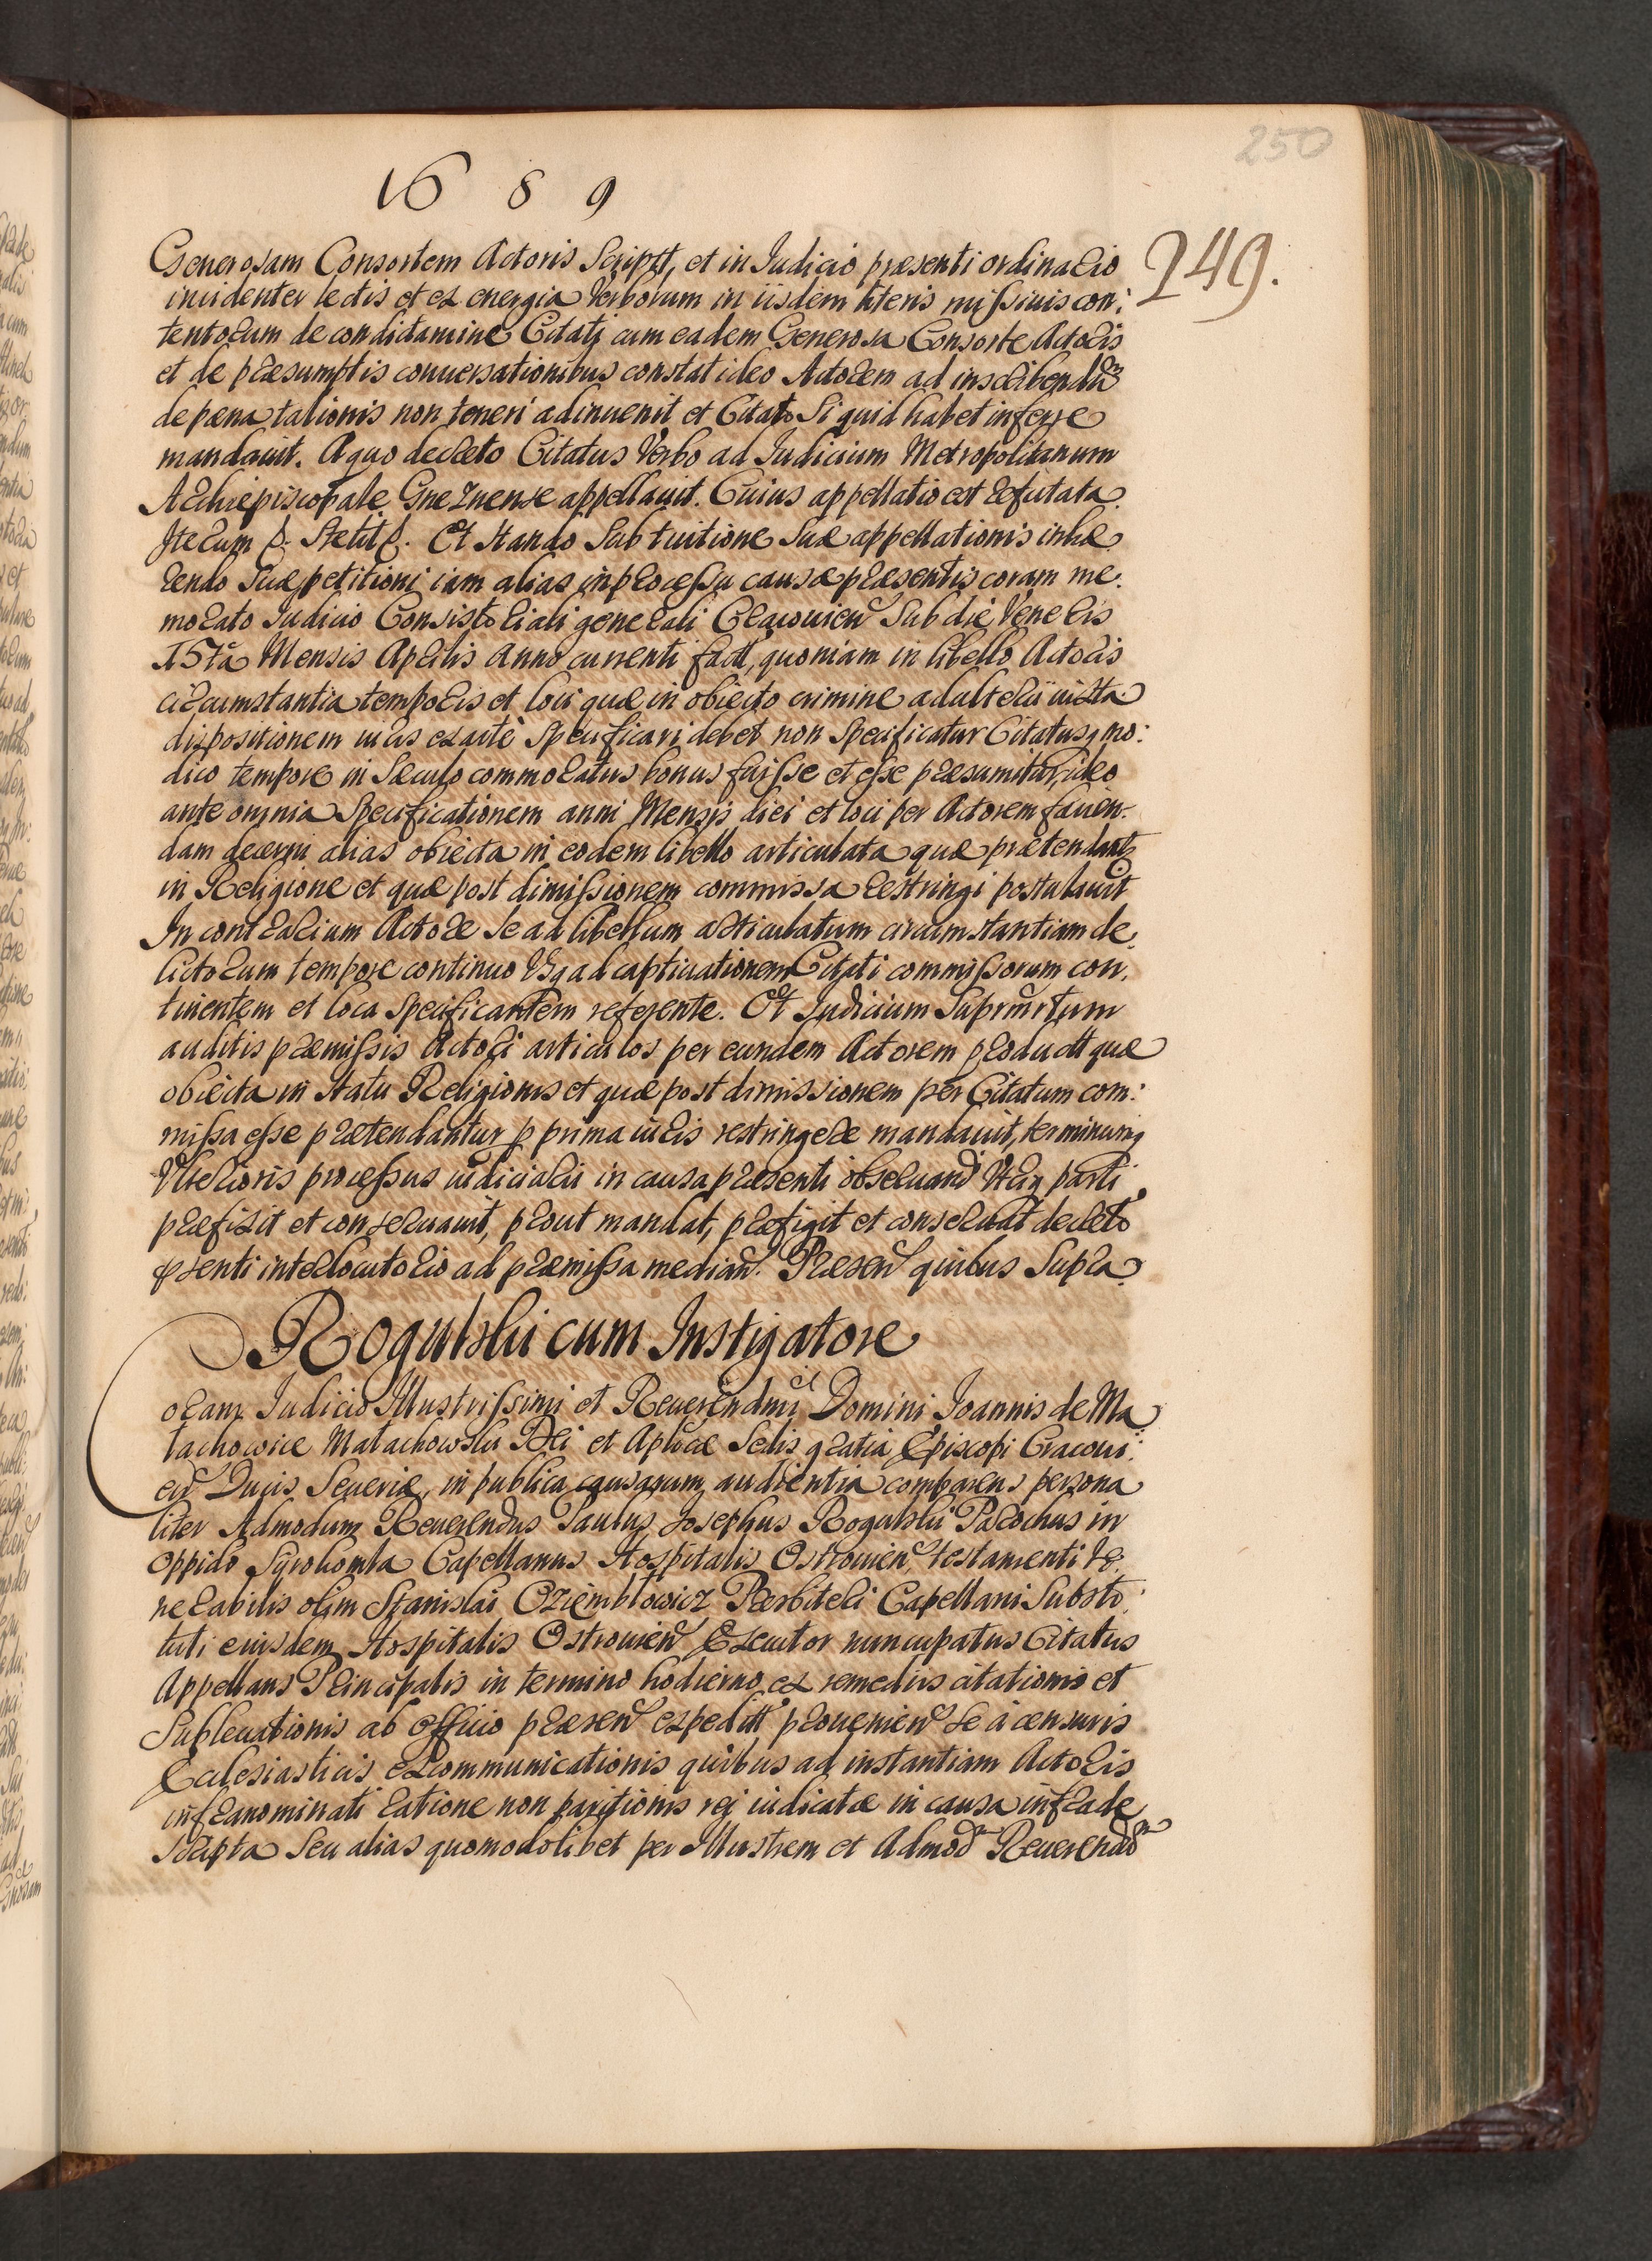 250
1689
249.
Generosam Consortem Actoris Scriptt, et in Iudicio præsenti ordinario
incidenter lectis et ex energia Verborum in iisdem literis missiuis con:
tentorum de condictamine Citati cum eadem Generosa Consorte Actoris
et de præsumptis conuersationibus constat ideo Actorem ad inscribendũ
de pæna talionis non teneri adinuenit et Citato Si quid habet inferre
mandauit. A quo decreto Citatus Verbo ad Iudicium Metropolitanum
Archiepiscopale Gneznense appellauit. Cuius appellatio est refutata
Iterum p. Stetit p. Et Stando Sub tuitione Suæ appellationis inhæ
rendo Suæ petitioni iam alias in processu causæ præsentis coram me.
morato Iudicio Consistoriali generali Cracouien Sub die Veneris
15ta Mensis Aprilis Anno currenti fact, quoniam in libello Actoris
circumstantia temporis et loci quæ in obiecto crimine adulterii iuxta
dispositionem iuris exacte Specificari debet non Specificatur Citatusq mo:
dico tempore in Sæculo commoratus bonus fuisse et esse præsumitur, ideo
ante omnia Specificationem anni Mensis diei et loci per Actorem facien-
dam decerni alias obiecta in eodem libello articulata quæ prætendunt
in Religione et quæ post dimissionem commissa restringi postulauit
In contrarium Actore Se ad libellum articulatum circumstantiam de
lictorum tempore continuo Usq ad captiuationem Citati commissorum con.
tinentem et loca Specificantem referente. Et Iudicium
auditis præmissis Actori articulos per eundem Actorem productt quæ
obiecta in Statu Religionis et quæ post dimissionem per Citatum com:
missa esse prætendantur p prima iuris restringere mandauit, terminumq
Ulterioris processus iudiciarii in causa præsenti obseruand Utriq parti
præfixit et conseruauit, prout mandat, præfigit et conseruat decreto
psenti interlocutorio ad præmissa median. Præsen quibus Supra
Rogulski cum Instigatore
Coram Iudicio Illustrissimi et Reuerendmi Domini Ioannis de Ma
lachowice Malachowski Dei et Aplicæ Sedis gratia Episcopi Cracoui:
en Ducis Seueriæ, in publica causarum audientia comparens persona
liter Admodum Reuerendus Paulus Iosephus Rogulski Parochus in
oppido Syrokomla Capellanus Hospitalis Ostrouien testamenti Ve.
nerabilis olim Stanislai Oziemblowicz Præsbiteri Capellani Substi:
tuti eiusdem Hospitalis Ostrouien Executor nuncupatus Citatus
Appellans Principalis in termino hodierno ex remediis citationis et
Subleuationis ab officio præsen expeditt prouenien Se à censuris
Ecclesiasticis excommunicationis quibus ad instantiam Actoris
infranominati ratione non paritionis rei iudicatæ in causa infrade
scripta Seu alias quomodolibet per Illustrem et Admod Reuerendũ